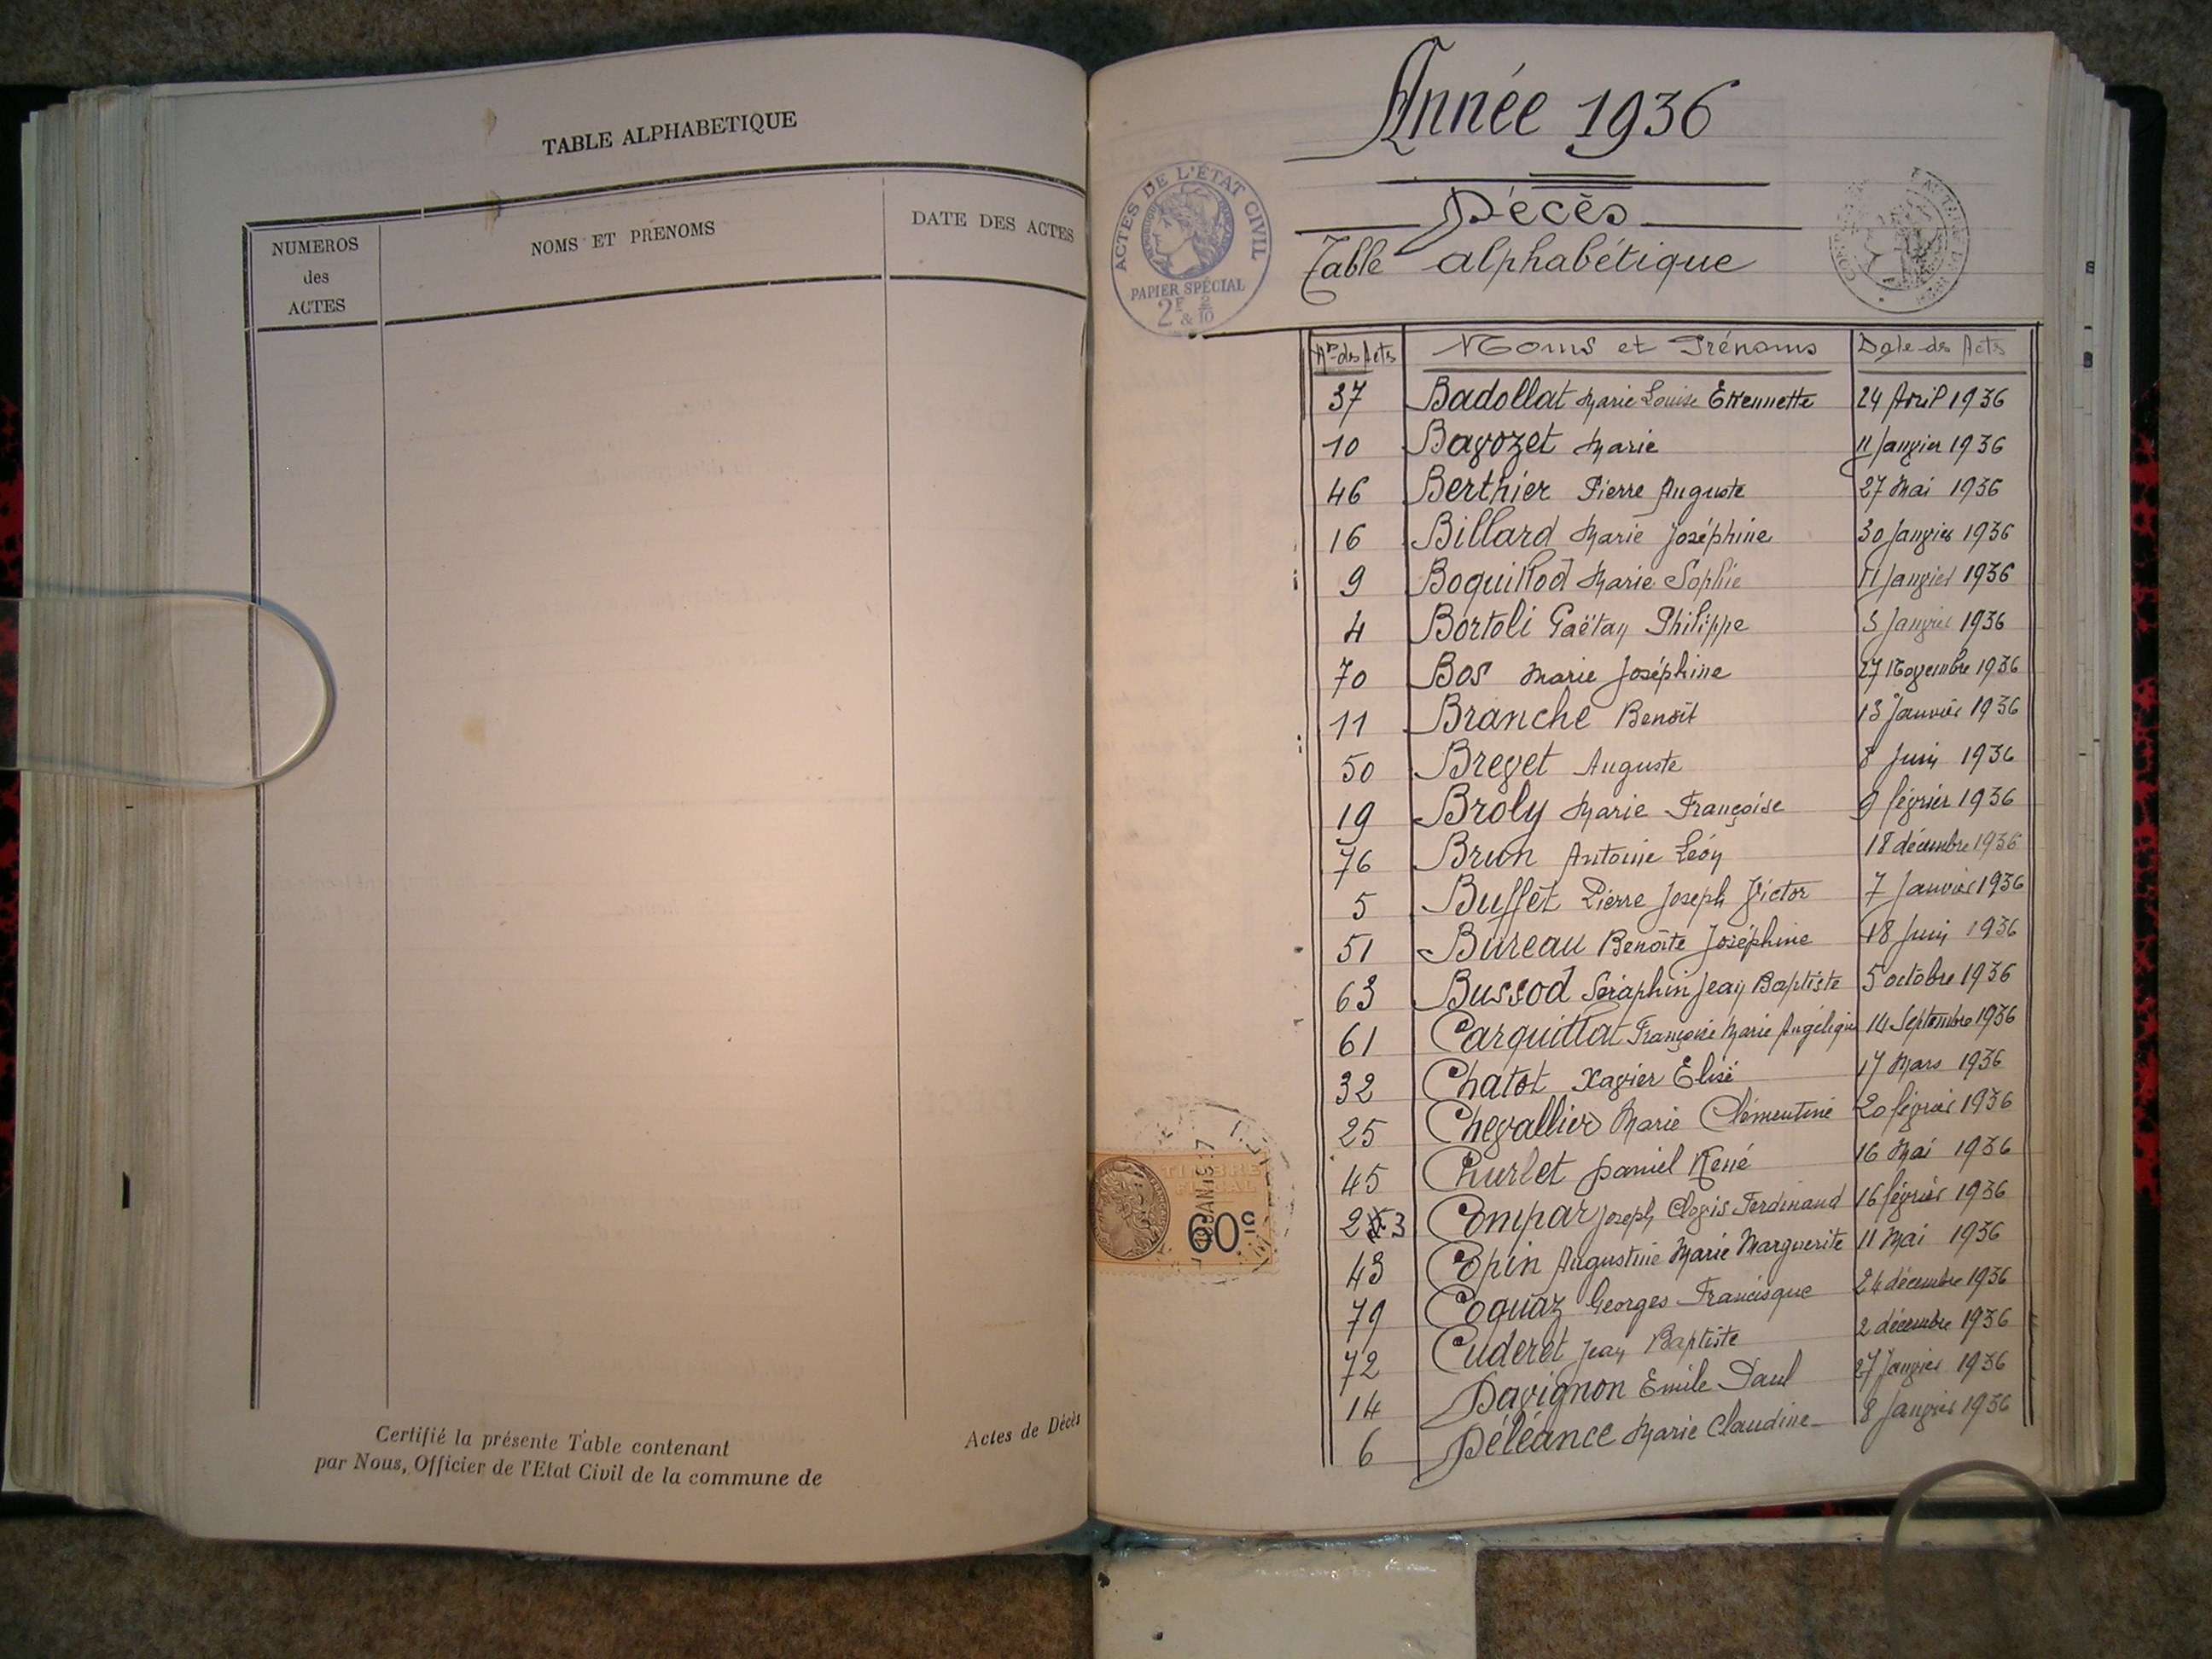 TABLE ALPHABETIQUE
NUMEROS
des
ACTES
NOMS ET PRENOMS
DATE DES ACTES
Certifié la présente Table contenant
Actes de Décès
par Nous, Officier de l'Etat Civil de la commune de
Année 1936
Décès
Table alphabétique
ACTES DE L'ÉTAT CIVIL
PAPIER SPÉCIAL
2F & 2/10
TIMBRE
FISCAL
60c
Nos des Actes Noms et Prénoms Date des Actes
37 Badollat Marie Louise Etiennette 24 Avril 1936
10 Bavozet Marie 11 Janvier 1936
46 Berthier Pierre Auguste 27 Mai 1936
16 Billard Marie Joséphine 30 Janvier 1936
9 Boquillod Marie Sophie 11 Janvier 1936
4 Bortoli Gaëtan Philippe 3 Janvier 1936
70 Bos Marie Joséphine 27 Novembre 1936
11 Branche Benoît 13 Janvier 1936
50 Brevet Auguste 8 Juin 1936
19 Broly Marie Françoise 9 février 1936
76 Brun Antoine Léon 18 décembre 1936
5 Buffet Pierre Joseph Victor 7 Janvier 1936
51 Bureau Benoîte Joséphine 18 Juin 1936
63 Bussod Séraphin Jean Baptiste 5 octobre 1936
61 Carquillat Françoise Marie Angélique 14 Septembre 1936
32 Chatot Xavier Elisé 17 Mars 1936
25 Chevallier Marie Clémentine 20 février 1936
45 Churlet Daniel René 16 Mai 1936
23 Compar Joseph Clovis Ferdinand 16 février 1936
43 Copin Augustine Marie Marguerite 11 Mai 1936
79 Coquaz Georges Francisque 24 décembre 1936
72 Cuderet Jean Baptiste 2 décembre 1936
14 Davignon Emile Paul 27 Janvier 1936
6 Déléance Marie Claudine 8 Janvier 1936